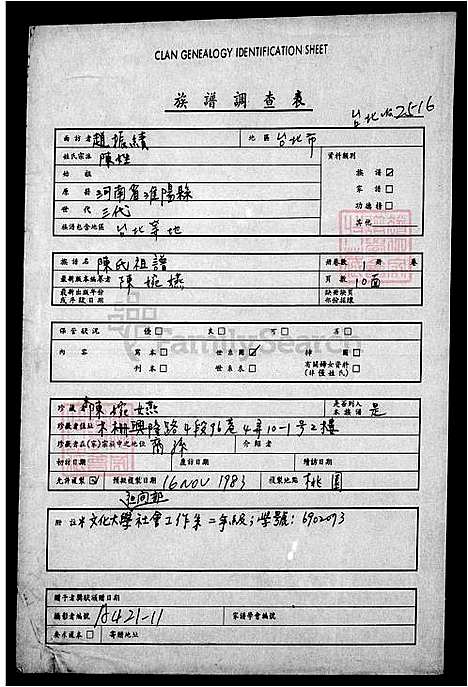 CLAN GENEALOGY IDENTIFICATION SHEET
族譜調查表
台北No2516
面訪者 趙振績 地區 台北市
姓氏宗派 陳姓 資料類別
始祖 族譜 ☑
原籍 河南省淮陽縣 家譜 □
世代 三代 功德榜 □
族譜包含地區 台北等地 其他
族譜名 陳氏祖譜 冊卷數 1 冊 卷
最新版本編纂者 陳婉嬿 頁數 10面
最新出版年份 缺冊缺頁
或序跋日期 部份採樣
保管狀況 優 □ 良 □ 可 □ 否 □
內容 寫本 □ 世系圖 ☑ 神圖 □
刊本 □ 世系表 □ 有關婦女資料 □
(非僅姓氏)
珍藏者 陳婉嬿 是否列入本族譜 是
珍藏者住址 木柵興隆路4段96巷4弄10-1号2樓
珍藏者在(家)宗族中之地位 裔孫 介紹者
初訪日期 應訪日期 續訪日期
允許複製 ☑ 預擬複製日期 16 NOV 1983 複製地點 桃園
附註 文化大學社會工作系二年級;學號:6902073
贈予者獎狀頒贈日期
攝影者編號 A421-11 家譜學會編號
要求複本 □ 寄贈地址
FamilySearch